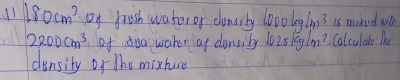 11 1180cm³ of fresh water of density 1000kg/m³ is mixed with
2200cm³ of sea water of density 1025kg/m³. Calculate the
density of the mixture